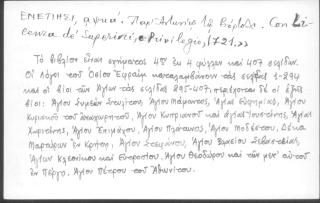 ΕΝΕΤΙΗΣΙ, αψκά. Παρ' Αντωνίῳ τῷ Βόρτολι. Con Li-
cenza de' Superiori, e Privilegio, 1721.»
Τὸ βιβλίον εἶναι σχήματος 4ον ἐκ 4 φύλλων καὶ 407 σελίδων.
Οἱ Λόγοι τοῦ Ὁσίου Ἐφραὶμ καταλαμβάνουν τὰς σελίδας 1-294
καὶ οἱ βίοι τῶν Ἁγίων τὰς σελίδας 295-407, περιέχονται δὲ οἱ ἑξῆς
βίοι: Ἁγίου Συμεὼν Στυλίτου, Ἁγίου Μάμαντος, Ἁγίας Εὐφημίας, Ἁγίου
Κυριακοῦ τοῦ ἀναχωρητοῦ, Ἁγίου Κυπριανοῦ καὶ ἁγίας Ἰουστίνης, Ἁγίας
Χαριτίνης, Ἁγίου Ἐπιμάχου, Ἁγίου Πλάτωνος, Ἁγίου Μοδέστου, Δέκα
Μαρτύρων ἐν Κρήτῃ, Ἁγίου Στεφάνου, Ἁγίου
Ἁγίων Κλεονίκου καὶ Εὐτροπίου, Ἁγίου Θεοδώρου καὶ τῶν μετ' αὐτοῦ
ἐν Πέργῃ, Ἁγίου Πέτρου τοῦ Ἀθωνίτου.